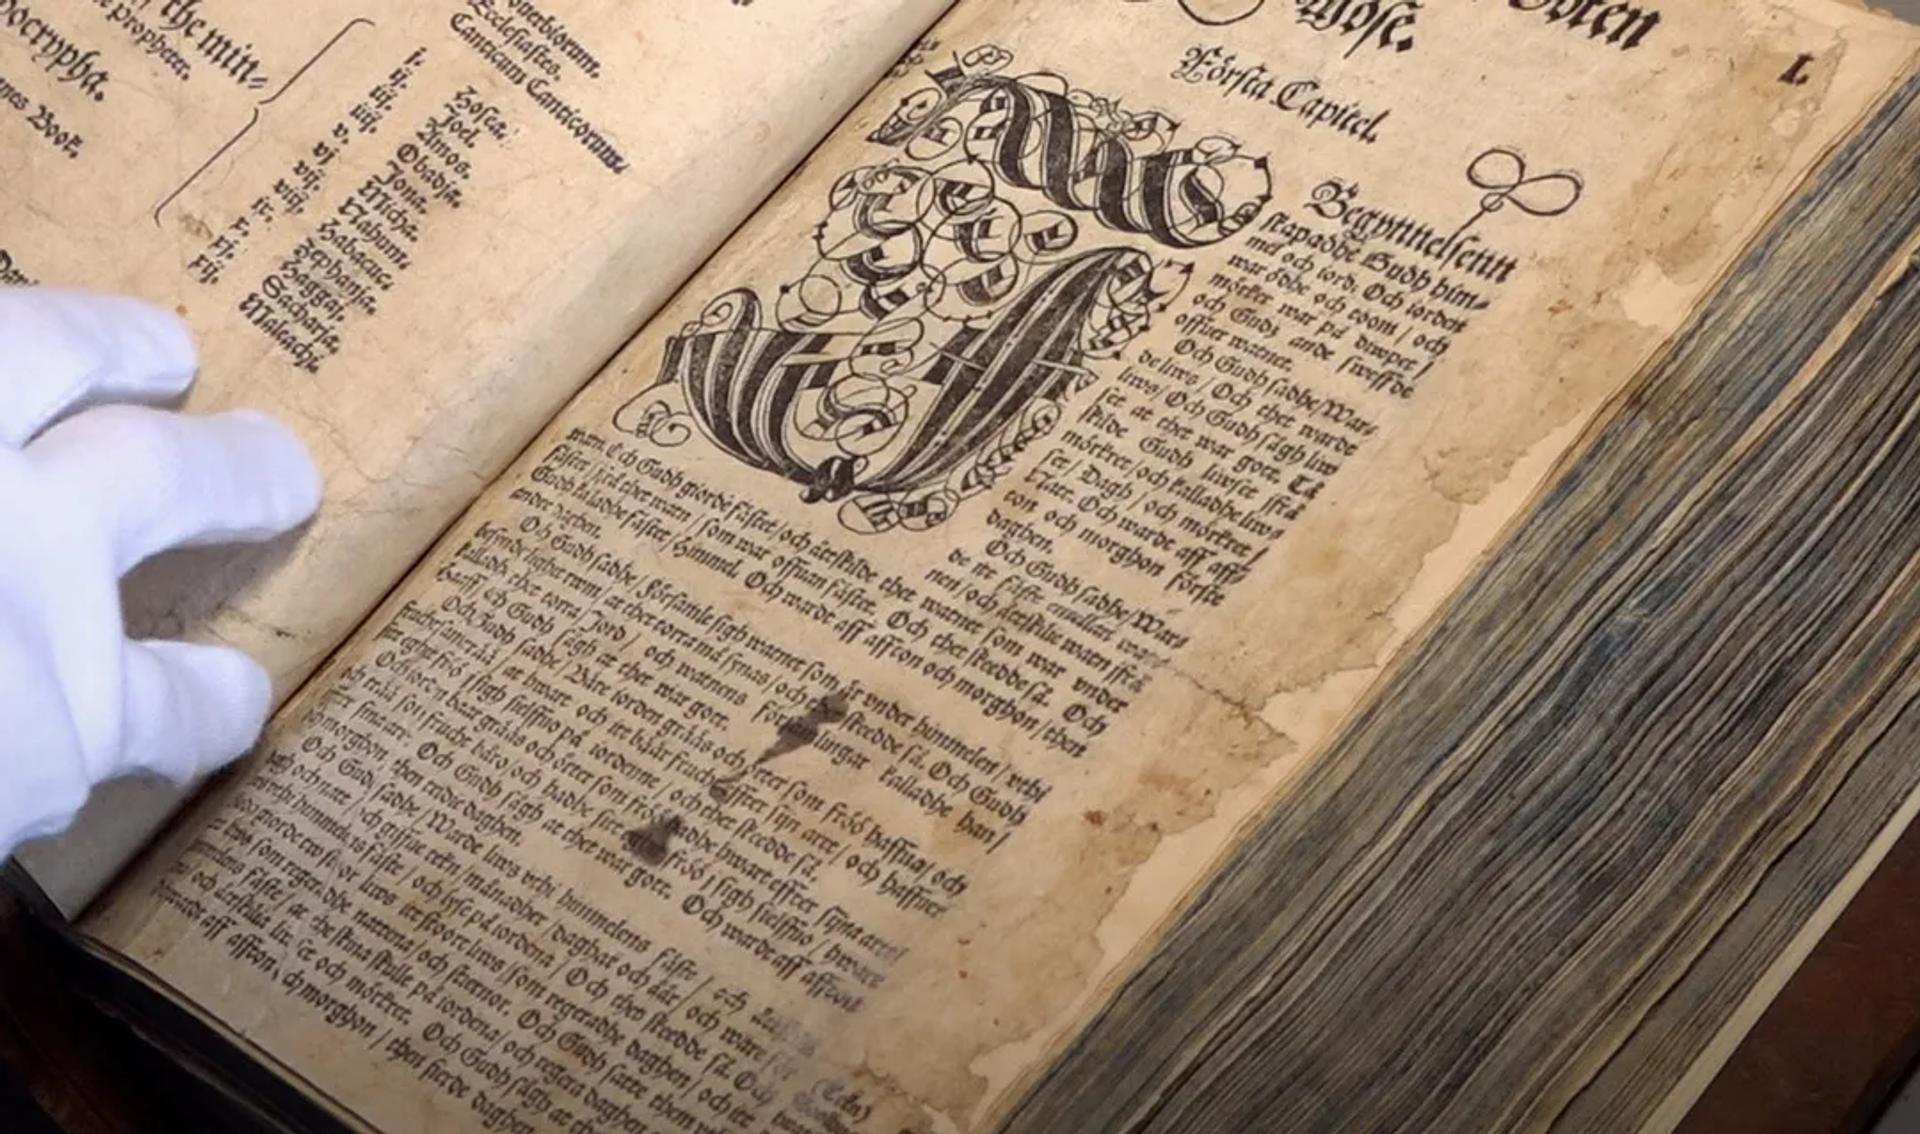 the min⸗
the propheter.
pocrypha.
nes Book.
ouerbiorum.
Ecclesiastes.
Canticum Canticorum.
j. Hosea.
ij. Joel.
iij. Amos.
iiij. Obadja.
v. Jona.
vj Micha.
vij. Nahum.
viij. Habacuc.
ix. Zephanja.
x. Haggaj.
xj. Sacharja.
xij. Malachi.
Boken
Mose.
I.
Första Capitel.
I Begynnelsenn
skapadhe Gudh him⸗
mel och iord. Och iorden
war ödhe och toom / och
mörker war på diwpet /
och Gudz ande sweffde
offuer watnet.
Och Gudh sadhe / War⸗
de liws / Och thet wardt
liws / Och Gudh sågh liw
set at thet war gott. Tå
skilde Gudh liwset ifrå
mörkret / och kalladhe liws
set / Dagh / och mörkret /
Natt. Och wardt aff aff⸗
ton och morghon förste
daghen.
Och Gudh sadhe / Ward
de itt fäste emellan
nen / och åtskilie watn ifrå
watn. Och Gudh giorde fästet / och åtskilde thet watnet som war vnder
fästet / ifrå thet watn / som war offuan fästet. Och thet skedde så. Och
Gudh kalladhe fästet / Himmel. Och wardt aff affton och morghon / then
andre daghen.
Och Gudh sadhe / Församle sigh watnet som är vnder himmelen / vthi
besynderlighe rwm / at thet torra må synas / och skedde så. Och Gudh
kalladhe thet torra / Jord / och watnens för lingar kalladhe han /
Haaff / och Gudh sågh at thet war gott.
Och Gudh sadhe / Bäre iorden gräås och örter som fröö haffua / och
frucht såm trää / at hwart och itt bäär frucht effter sijn art / och haffuer
sitt eghet frö i sigh sielffuo på iordenne / och thet skedde så.
Och iorden baar gräås och örter som fröö hadhe hwart effter sijna art /
och trää som frucht båro / och hadhe sitt fröö i sigh sielffuo / hwart
effter sijna art. Och Gudh sågh at thet war gott. Och wardt aff affton
och morghon then tridie daghen.
Och Gudh sadhe / Warde liws vthi himmelens fäste / och
dagh och natt / och giffue tekn / månadher / daghar och åår / och ware
vthi himmelens fäste / och lyse på iordena / Och thet skedde så. Och
Gudh giorde tw stoor liws / itt stoort liws / som regeradhe daghen / och itt
liws som regeradhe nattena / och stiernor. Och Gudh satte them vthi
himmelens fäste / at the skina skulle på iordena / och regera daghen
och åtskilia liws och mörker. Och Gudh sågh at
wardt aff affton och morghon / then fierde daghen